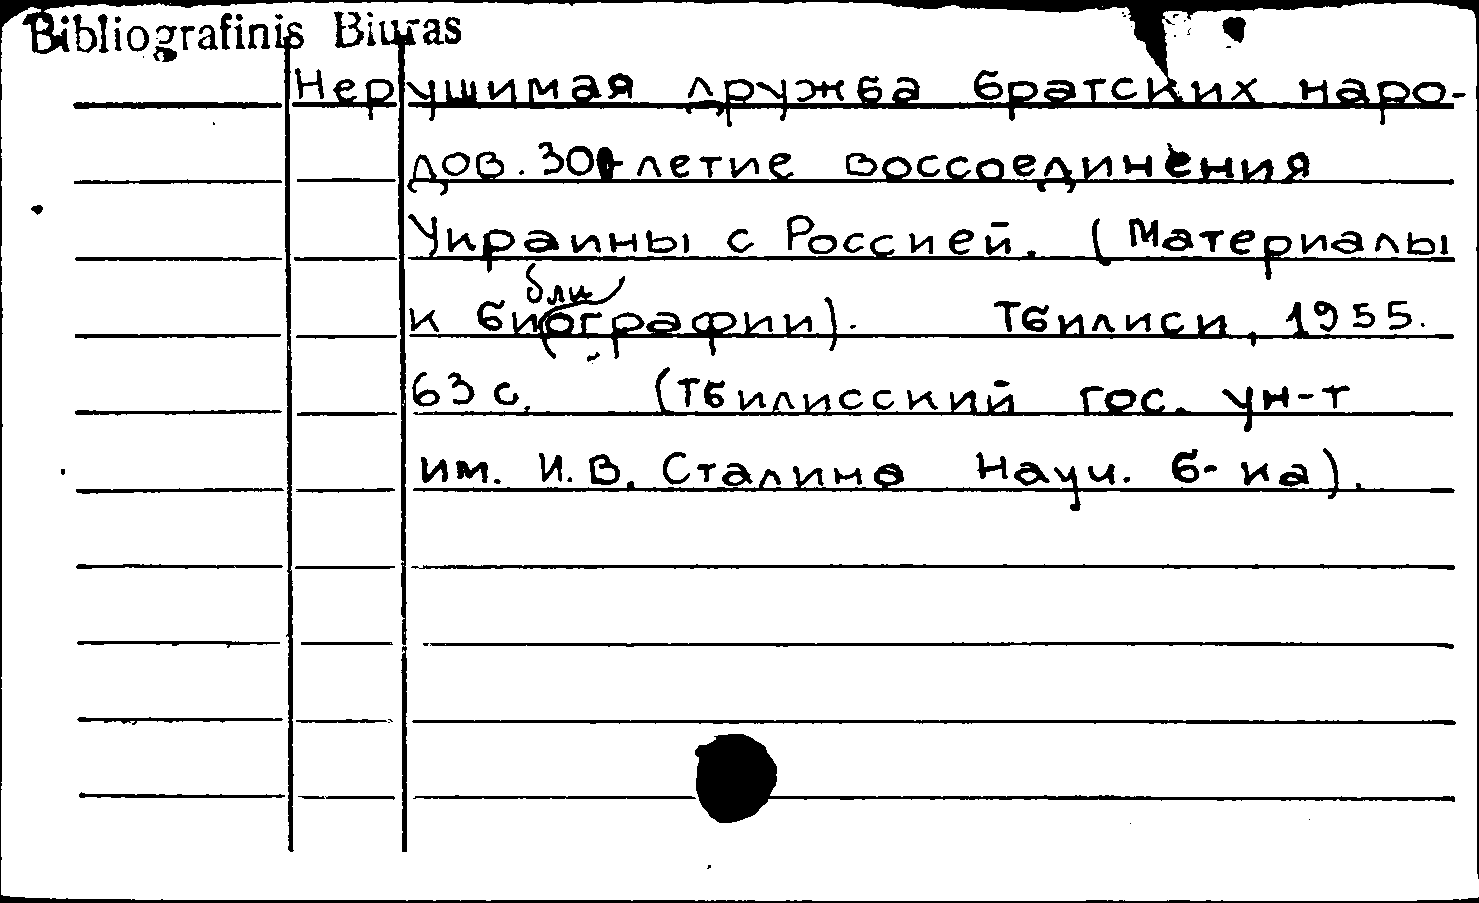 Bibliografinis Biuras
Нерушимая дружба братских наро-
дов. 300-летие воссоединения
Украины с Россией. (Материалы
бли
к биографии). Тбилиси, 1955.
63 с. (Тбилисский гос. ун-т
им. И. В. Сталина Науч. б-ка).